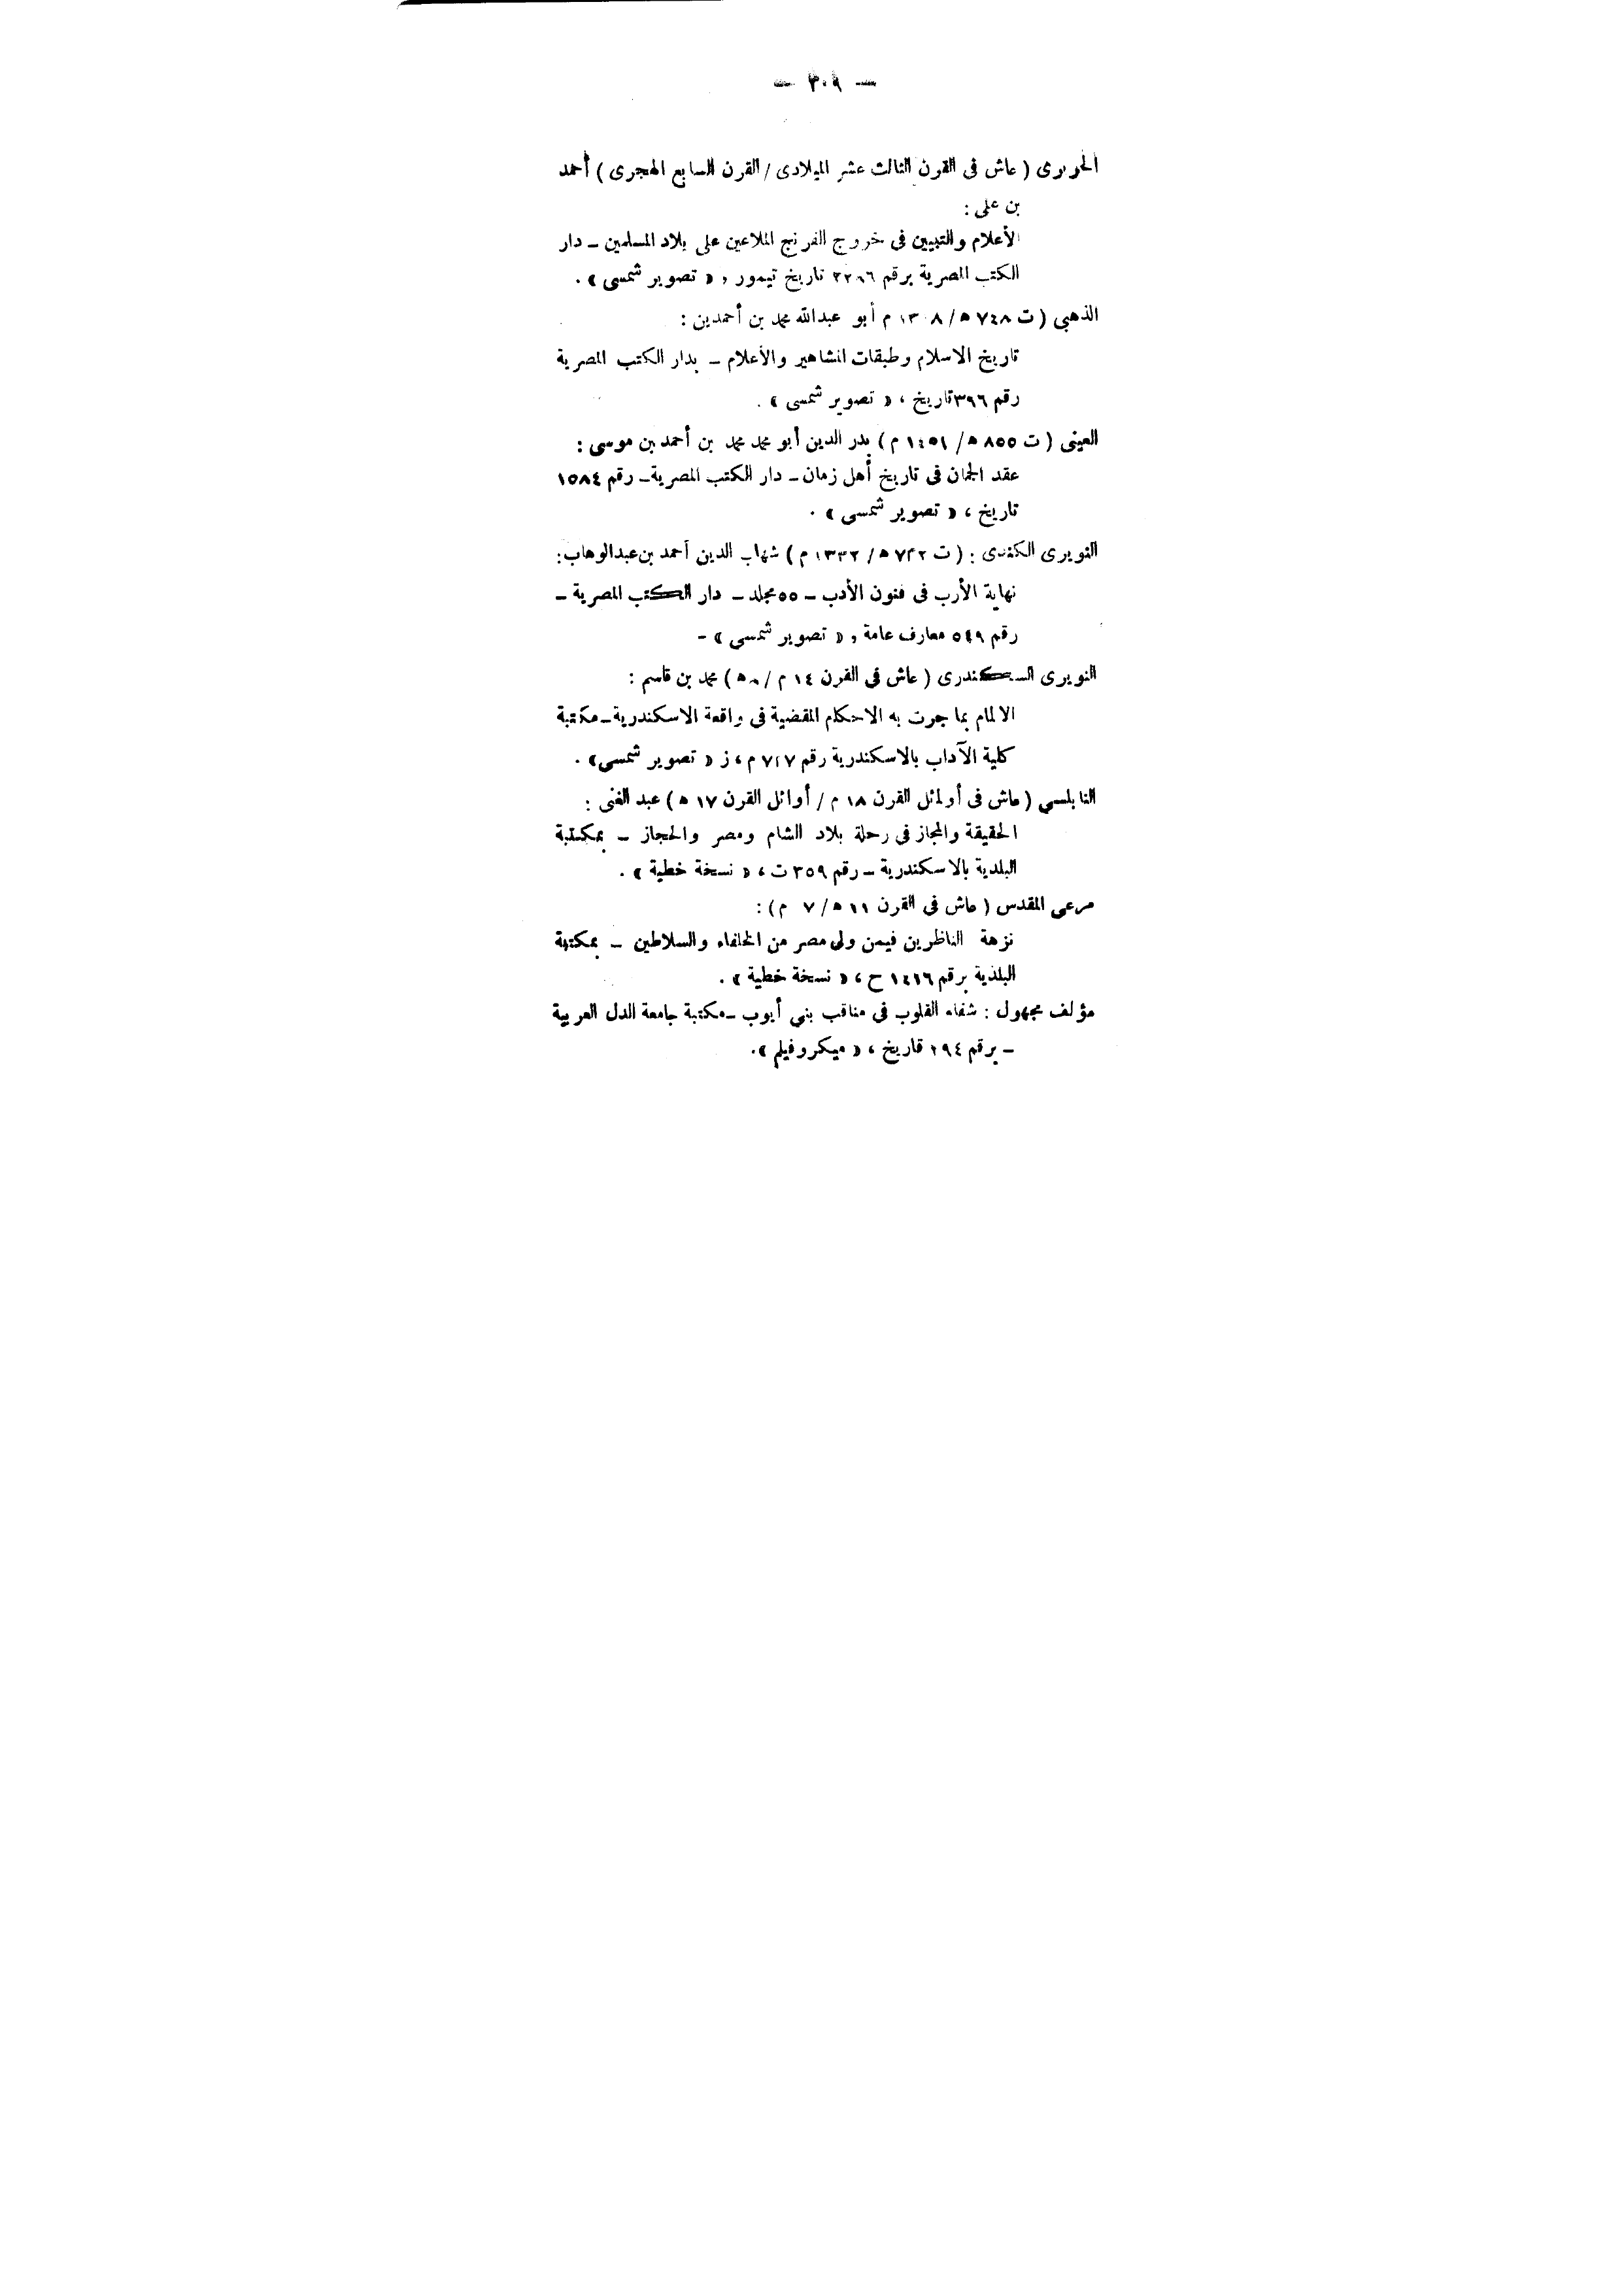 — ٣٠٩ —
الحريرى ( عاش فى القرن الثالث عشر الميلادى / القرن السابع الهجرى ) أحمد
بن على :
الأعلام والتبيين فى خروج الفرنج الملاعين على بلاد المسلمين – دار
الكتب المصرية برقم تاريخ تيمور , « تصوير شمسى » .
الذهبى ( ت ٧٤٨ ه / م أبو عبدالله محمد بن أحمدبن :
تاريخ الاسلام وطبقات المشاهير والأعلام – بدار الكتب المصرية
رقم ٣٩٦ تاريخ ، « تصوير شمسى » .
العينى ( ت ٨٥٥ ه / ١٤٥١ م ) بدر الدين أبو محمد محمد بن أحمد بن موسى :
عقد الجمان فى تاريخ أهل زمان – دار الكتب المصرية – رقم ١٥٨٤
تاريخ ، « تصوير شمسى » .
النويرى الكندى : ( ت ٧٣٢ ه / ١٣٣٢ م ) شهاب الدين أحمد بن عبدالوهاب :
نهاية الأرب فى فنون الأدب – ٥٥ مجلد – دار الكتب المصرية –
رقم ٥٤٩ معارف عامة , « تصوير شمسى » –
النويرى السكندرى ( عاش فى القرن ١٤ م / ٨ ه ) محمد بن قاسم :
الالمام بما جرت به الاحكام المقضية فى واقعة الاسكندرية – مكتبة
كلية الآداب بالاسكندرية رقم م ، ز « تصوير شمسى » .
النابلسي ( عاش فى أوائل القرن ١٨ م / أوائل القرن ١٧ ه ) عبد الغنى :
الحقيقة والمجاز فى رحلة بلاد الشام ومصر والحجاز – بمكتبة
البلدية بالاسكندرية – رقم ٣٥٩ ت ، « نسخة خطية » .
مرعى المقدس ( عاش فى القرن ١١ ه / ٧ م ) :
نزهة الناظرين فيمن ولى مصر من الخلفاء والسلاطين – بمكتبة
البلدية برقم ١٤١٦ ح ، « نسخة خطية » .
مؤلف مجهول : شفاء القلوب فى مناقب بنى أيوب – مكتبة جامعة الدل العربية
– برقم تاريخ ، « ميكروفيلم » .